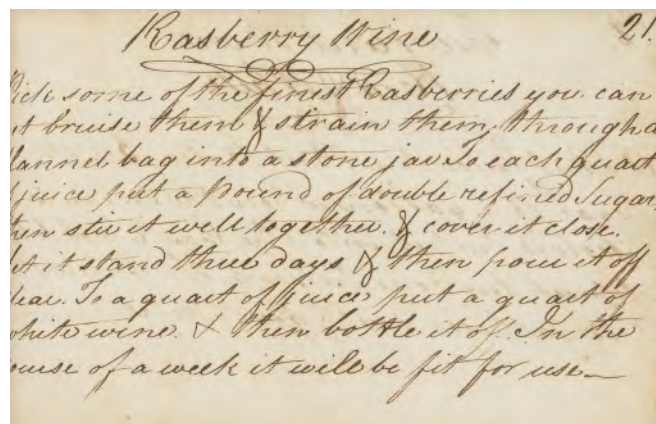 Rasberry Wine 21.
ick some of the finest Rasberries you can
t bruise them & strain them, through a
lannel bag into a stone jar To each quart
juice put a Pound of double refined Sugar,
hen stir it well together. & cover it close.
et it stand three days & then pour it off
lear. To a quart of juice put a quart of
white wine. & then bottle it of. In the
ourse of a week it will be fit for use—